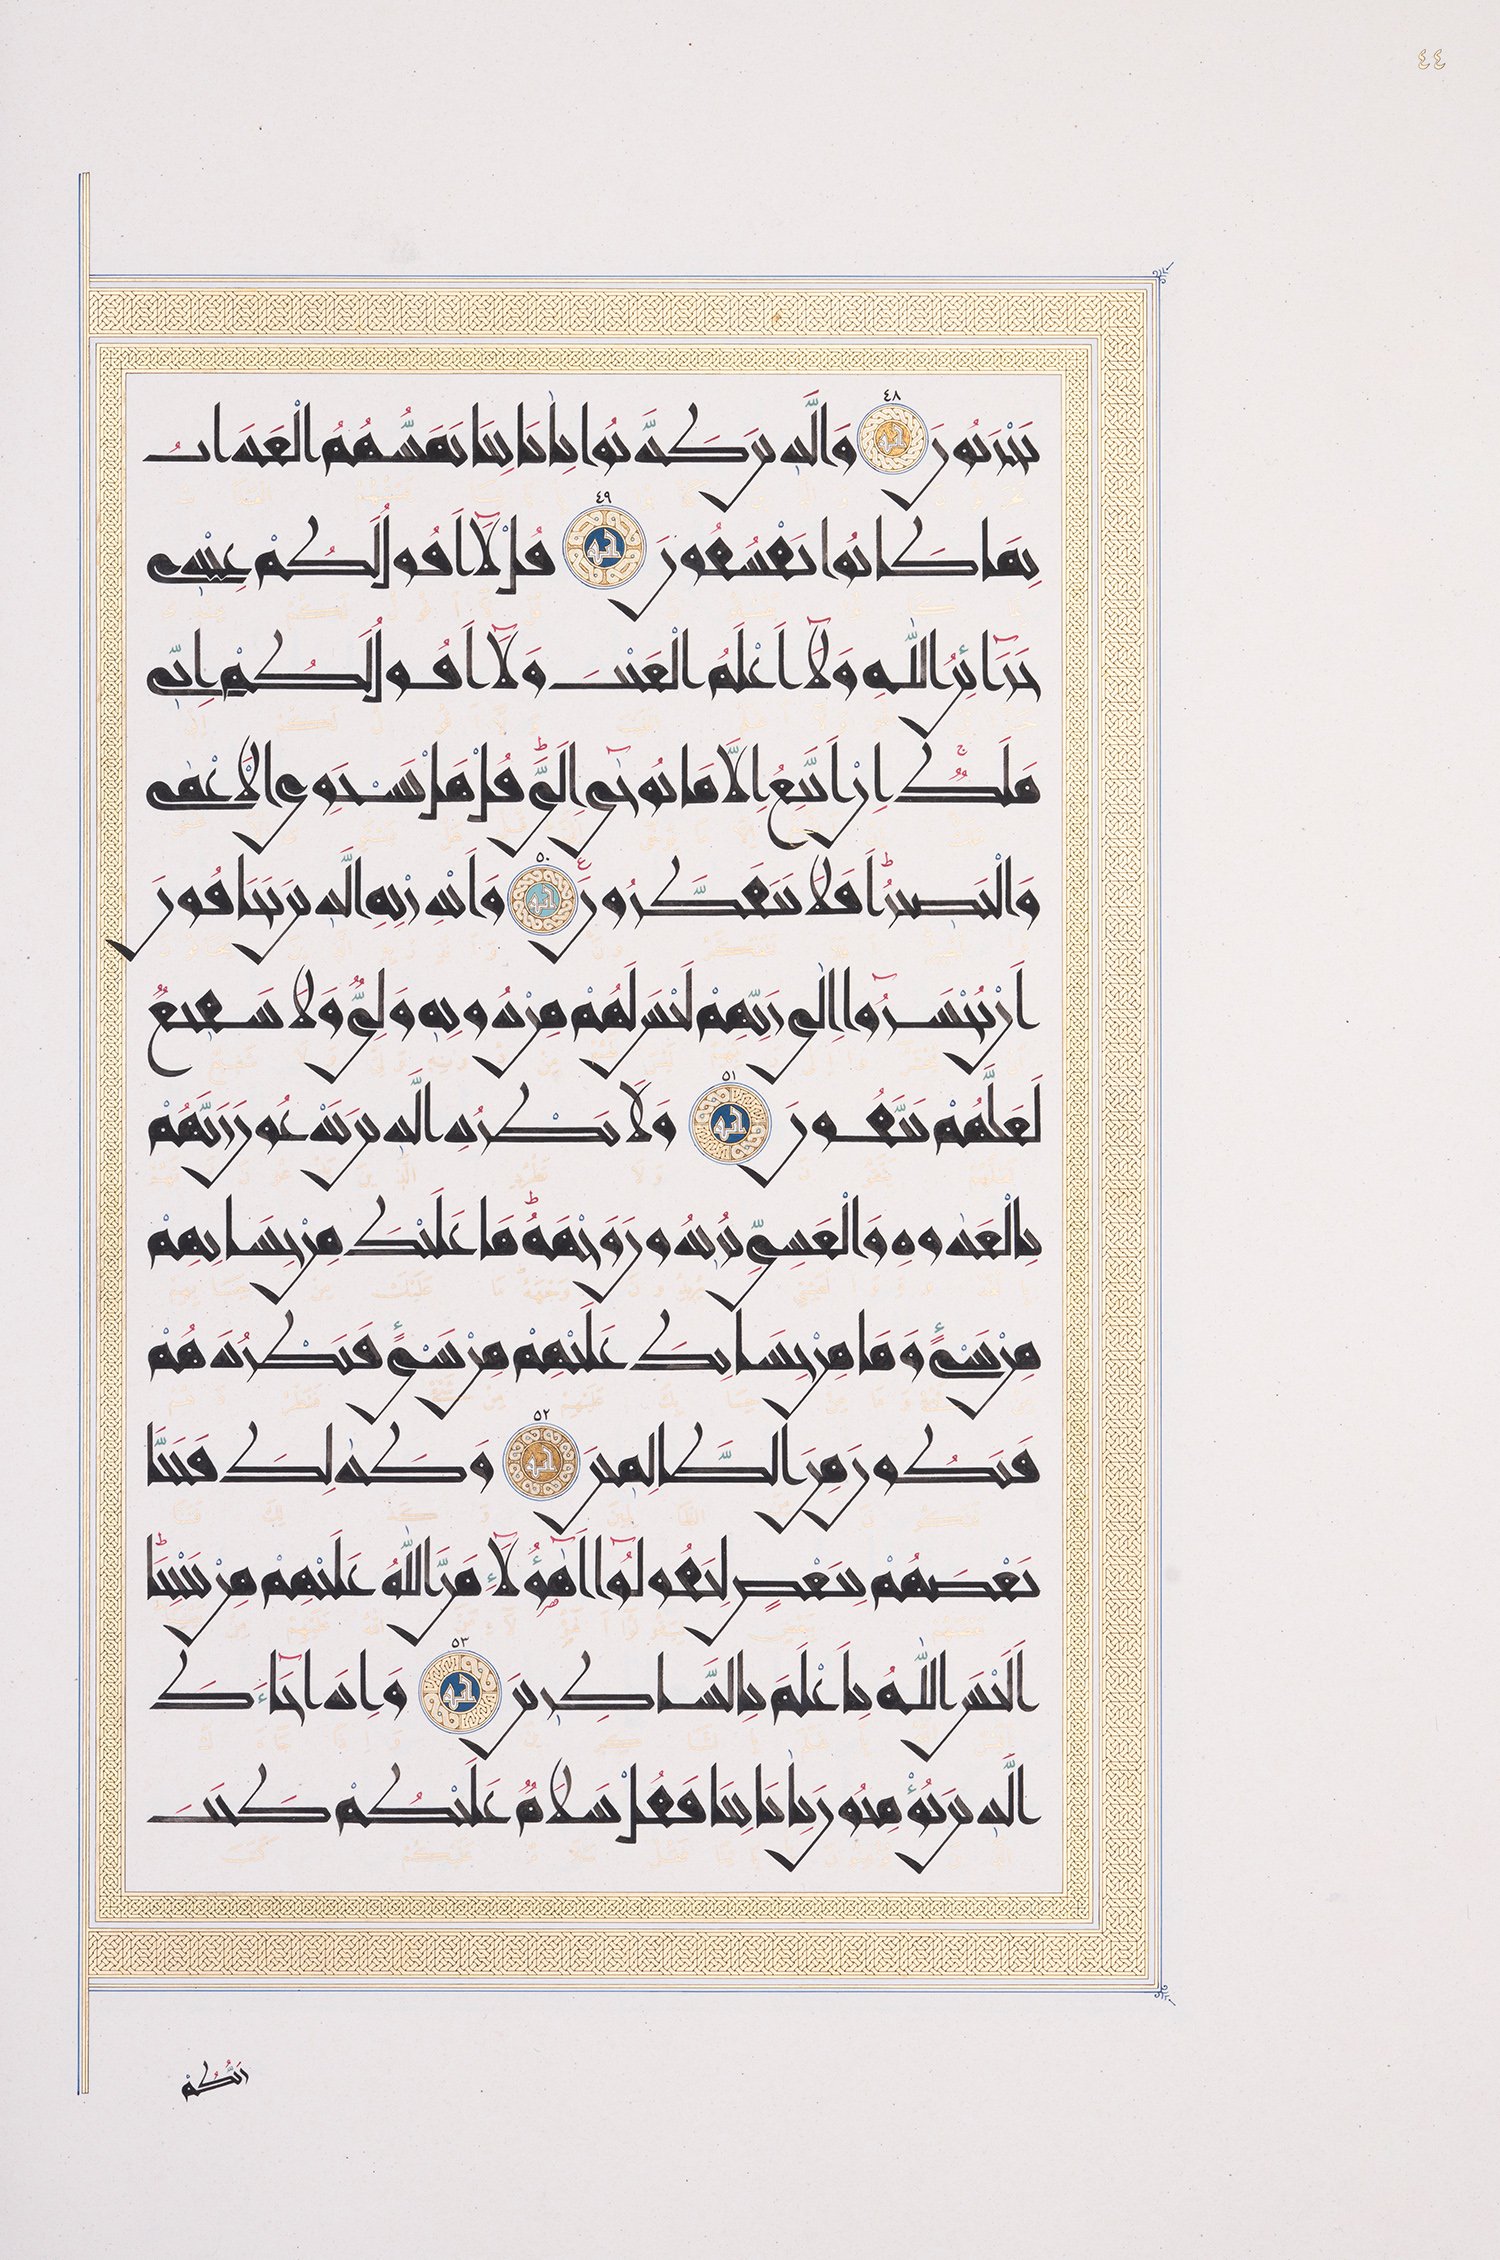 ٤٤
يَحْزَنُونَ ٤٨ وَالَّذِينَ كَذَّبُوا بِاٰيَاتِنَا يَمَسُّهُمُ الْعَذَابُ
بِمَا كَانُوا يَفْسُقُونَ ٤٩ قُلْ لَٓا اَقُولُ لَكُمْ عِنْدِي
خَزَٓائِنُ اللّٰهِ وَلَٓا اَعْلَمُ الْغَيْبَ وَلَٓا اَقُولُ لَكُمْ اِنِّي
مَلَكٌۚ اِنْ اَتَّبِعُ اِلَّا مَا يُوحٰٓى اِلَيَّۜ قُلْ هَلْ يَسْتَوِي الْاَعْمٰى
وَالْبَصِيرُۜ اَفَلَا تَتَفَكَّرُونَ۟ ٥٠ وَاَنْذِرْ بِهِ الَّذِينَ يَخَافُونَ
اَنْ يُحْشَرُٓوا اِلٰى رَبِّهِمْ لَيْسَ لَهُمْ مِنْ دُونِهِ وَلِيٌّ وَلَا شَفِيعٌ
لَعَلَّهُمْ يَتَّقُونَ ٥١ وَلَا تَطْرُدِ الَّذِينَ يَدْعُونَ رَبَّهُمْ
بِالْغَدٰوةِ وَالْعَشِيِّ يُرِيدُونَ وَجْهَهُۜ مَا عَلَيْكَ مِنْ حِسَابِهِمْ
مِنْ شَيْءٍ وَمَا مِنْ حِسَابِكَ عَلَيْهِمْ مِنْ شَيْءٍ فَتَطْرُدَهُمْ
فَتَكُونَ مِنَ الظَّالِمِينَ ٥٢ وَكَذٰلِكَ فَتَنَّا
بَعْضَهُمْ بِبَعْضٍ لِيَقُولُٓوا اَهٰٓؤُ۬لَٓاءِ مَنَّ اللّٰهُ عَلَيْهِمْ مِنْ بَيْنِنَاۜ
اَلَيْسَ اللّٰهُ بِاَعْلَمَ بِالشَّاكِرِينَ ٥٣ وَاِذَا جَٓاءَكَ
الَّذِينَ يُؤْمِنُونَ بِاٰيَاتِنَا فَقُلْ سَلَامٌ عَلَيْكُمْ كَتَبَ
رَبُّكُمْ